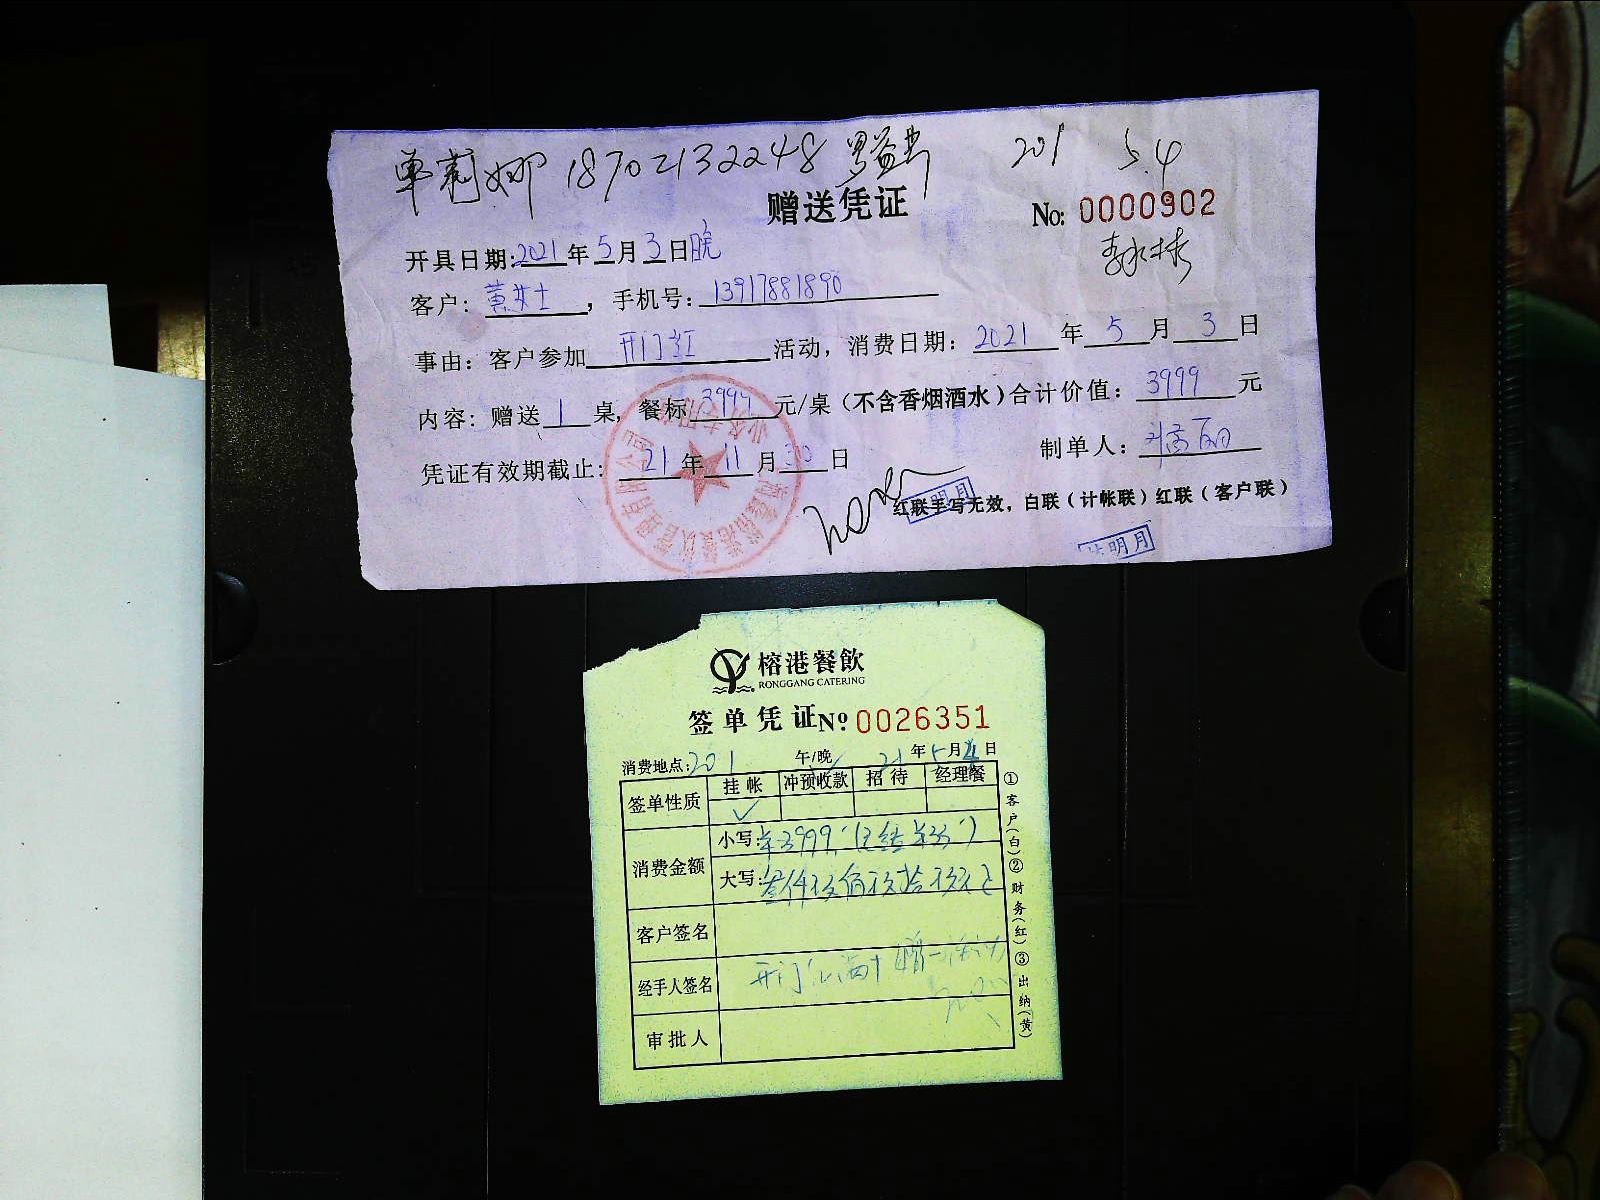 18702132248 201 5.4
赠送凭证
No: 0000902
开具日期:2021年5月3日晚
客户: 黄女士 ，手机号: 13917881890
事由: 客户参加 开门红 活动，消费日期: 2021 年 5 月 3 日
内容: 赠送 1 桌, 餐标 3999 元/桌 (不含香烟酒水) 合计价值: 3999 元
凭证有效期截止: 21 年 11 月 30 日
制单人:
红联手写无效，白联（计帐联）红联（客户联）
明月
明月
榕港餐飲
RONGGANG CATERING
签单凭证 Nº 0026351
消费地点: 201 午/晚 21 年 5 月 4 日
签单性质 挂帐 冲预收款 招待 经理餐
✓
消费金额
小写: ¥3999
大写: 叁仟玖佰玖拾玖元正
客户签名
经手人签名 开门红满十赠一活动
审批人
①客户(白)②财务(红)③出纳(黄)